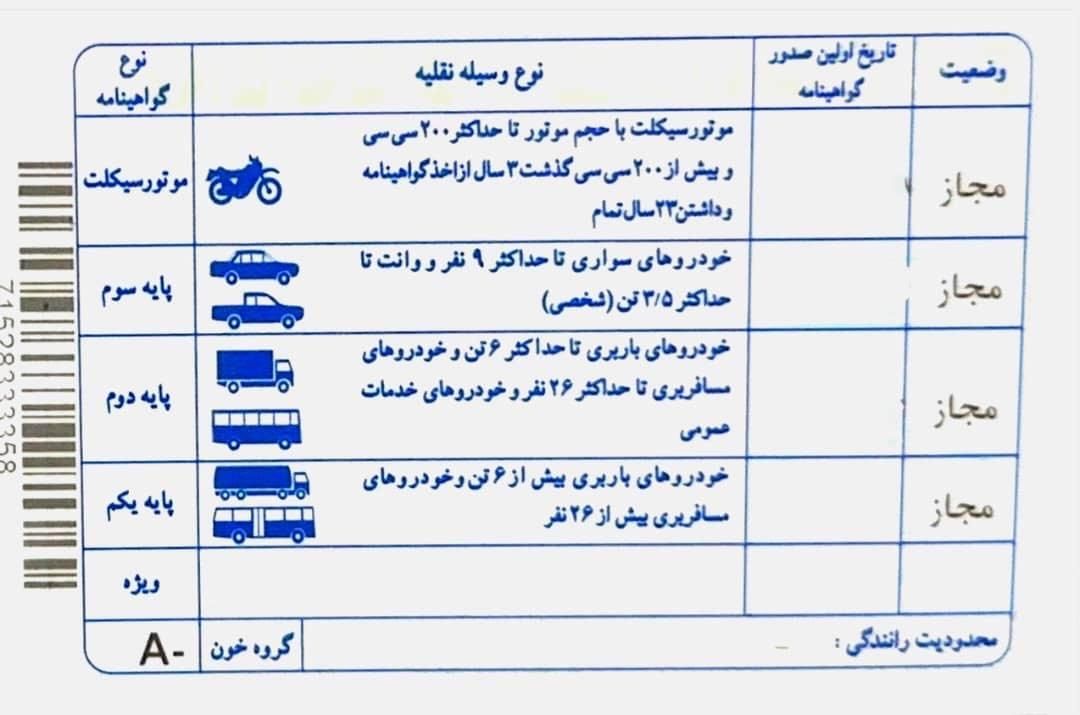 وضعیت
تاریخ اولین صدور
گواهینامه
نوع وسیله نقلیه
نوع
گواهینامه
مجاز
موتورسیکلت با حجم موتور تا حداکثر ۲۰۰ سی سی
و بیش از ۲۰۰ سی سی گذشت ۳ سال از اخذ گواهینامه
و داشتن ۲۳ سال تمام
موتورسیکلت
مجاز
خودروهای سواری تا حداکثر ۹ نفر و وانت تا
حداکثر ۳/۵ تن (شخصی)
پایه سوم
مجاز
خودروهای باربری تا حداکثر ۶ تن و خودروهای
مسافربری تا حداکثر ۲۶ نفر و خودروهای خدمات
عمومی
پایه دوم
مجاز
خودروهای باربری بیش از ۶ تن و خودروهای
مسافربری بیش از ۲۶ نفر
پایه یکم
ویژه
محدودیت رانندگی : -
گروه خون
A-
7152833358